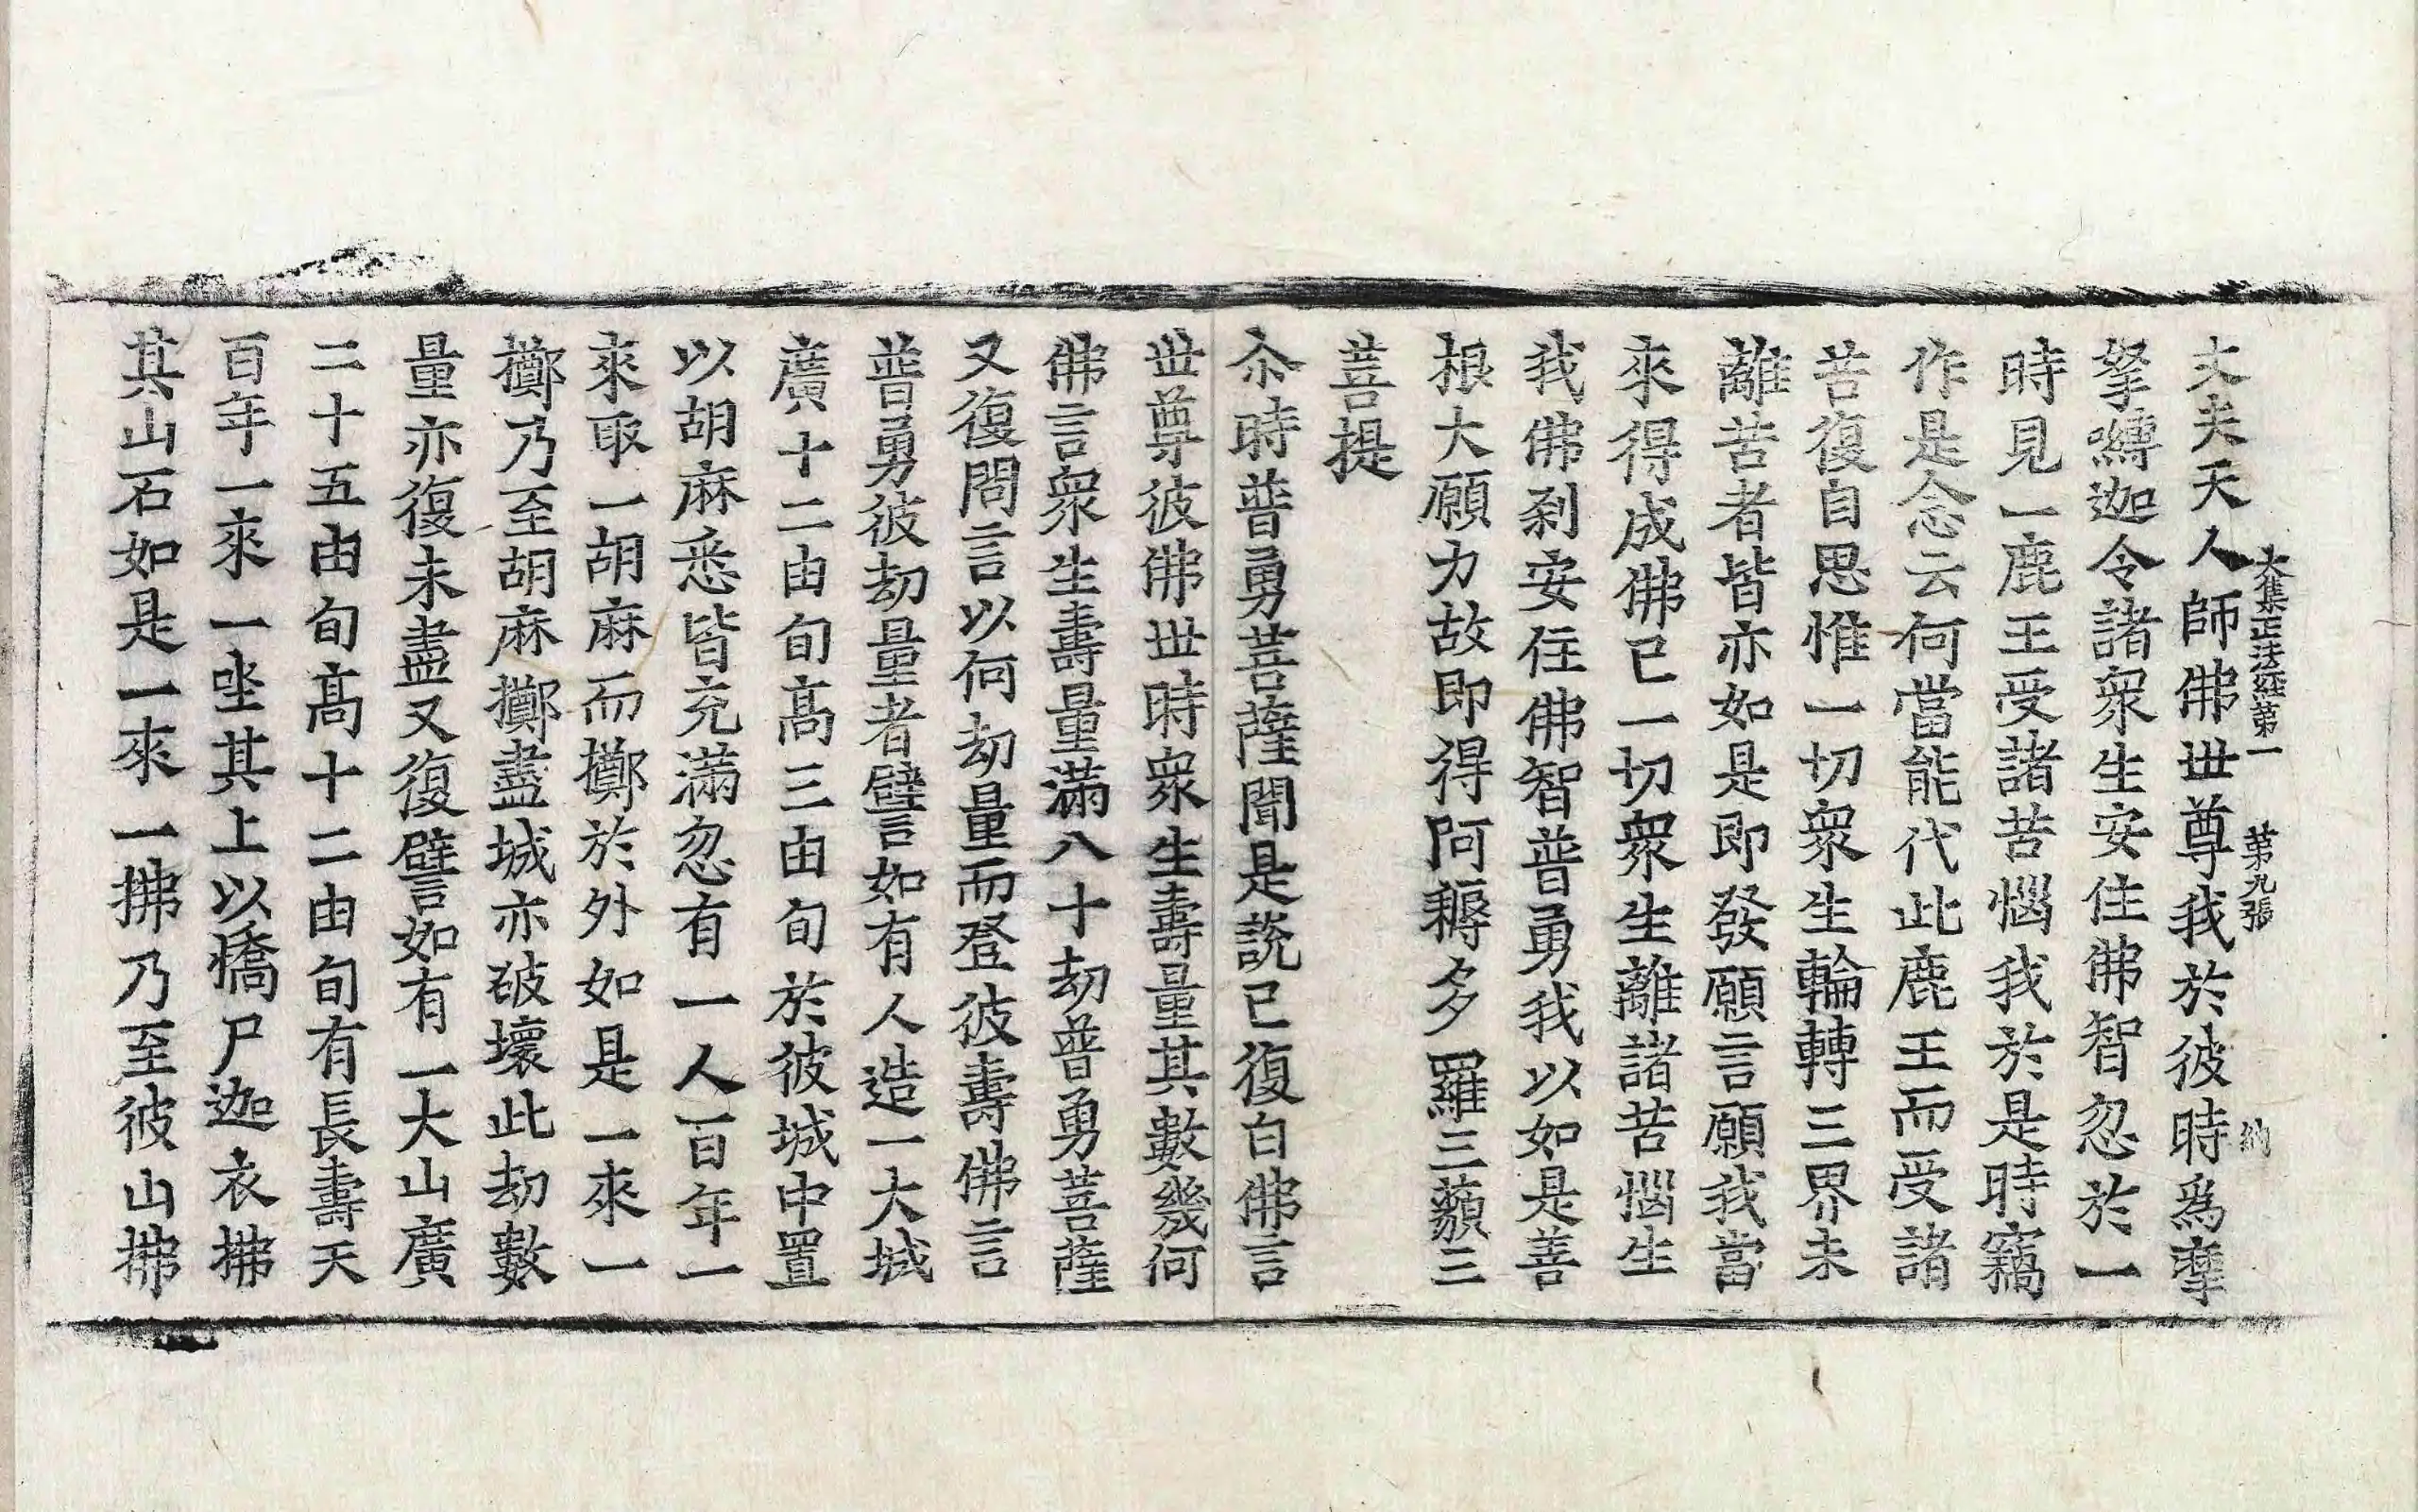 大集正法経第一 第九張 納
丈夫天人師佛世尊我於彼時爲摩
拏嚩迦令諸衆生安住佛智忍於一
時見一鹿王受諸苦惱我於是時竊
作是念云何當能代此鹿王而受諸
苦復自思惟一切衆生輪轉三界未
離苦者皆亦如是即發願言願我當
來得成佛已一切衆生離諸苦惱生
我佛刹安住佛智普勇我以如是善
根大願力故即得阿耨多羅三藐三
菩提
尒時普勇菩薩聞是說已復白佛言
世尊彼佛世時衆生壽量其數幾何
佛言衆生壽量滿八十劫普勇菩薩
又復問言以何劫量而登彼壽佛言
普勇彼劫量者譬如有人造一大城
廣十二由旬髙三由旬於彼城中置
以胡麻悉皆充滿忽有一人百年一
來取一胡麻而擲於外如是一來一
擲乃至胡麻擲盡城亦破壞此劫數
量亦復未盡又復譬如有一大山廣
二十五由旬髙十二由旬有長壽天
百年一來一坐其上以憍尸迦衣拂
其山石如是一來一拂乃至彼山拂